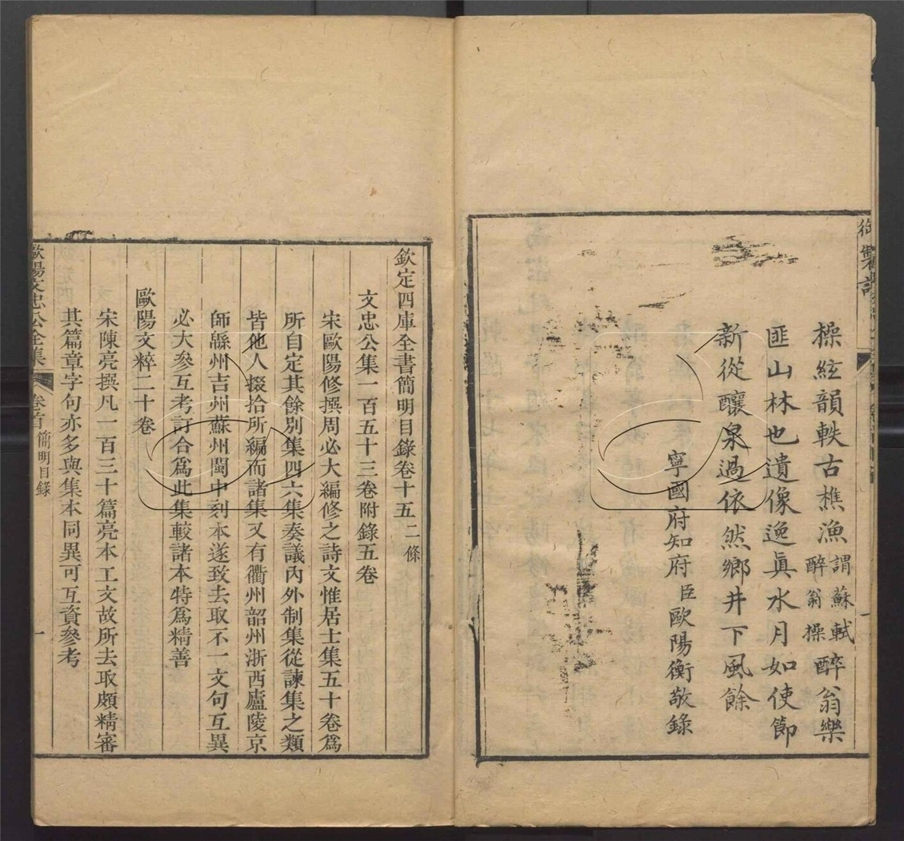 御製詩
操絃韻軼古樵漁謂蘇軾醉翁操醉翁樂
匪山林也遺像逸眞水月如使節
新從釀泉過依然鄉井下風餘
寧國府知府臣歐陽衡敬錄
欽定四庫全書簡明目錄卷十五二條
文忠公集一百五十三卷附錄五卷
宋歐陽修撰周必大編修之詩文惟居士集五十卷爲
所自定其餘別集四六集奏議內外制集從諫集之類
皆他人掇拾所編而諸集又有衢州韶州浙西廬陵京
師緜州吉州蘇州閩中刻本遂致去取不一文句互異
必大參互考訂合爲此集較諸本特爲精善
歐陽文粹二十卷
宋陳亮撰凡一百三十篇亮本工文故所去取頗精審
其篇章字句亦多與集本同異可互資參考
歐陽文忠公全集 卷首簡明目錄 一